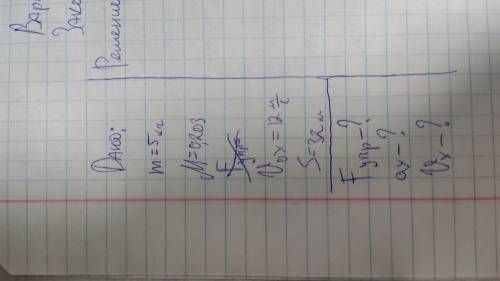 Вар
Зако
Решение
Дано:
m=5кг
M=0,203
Fупр=
V₀x=12 м/с
S=32м
Fупр-?
ax-?
Vx-?